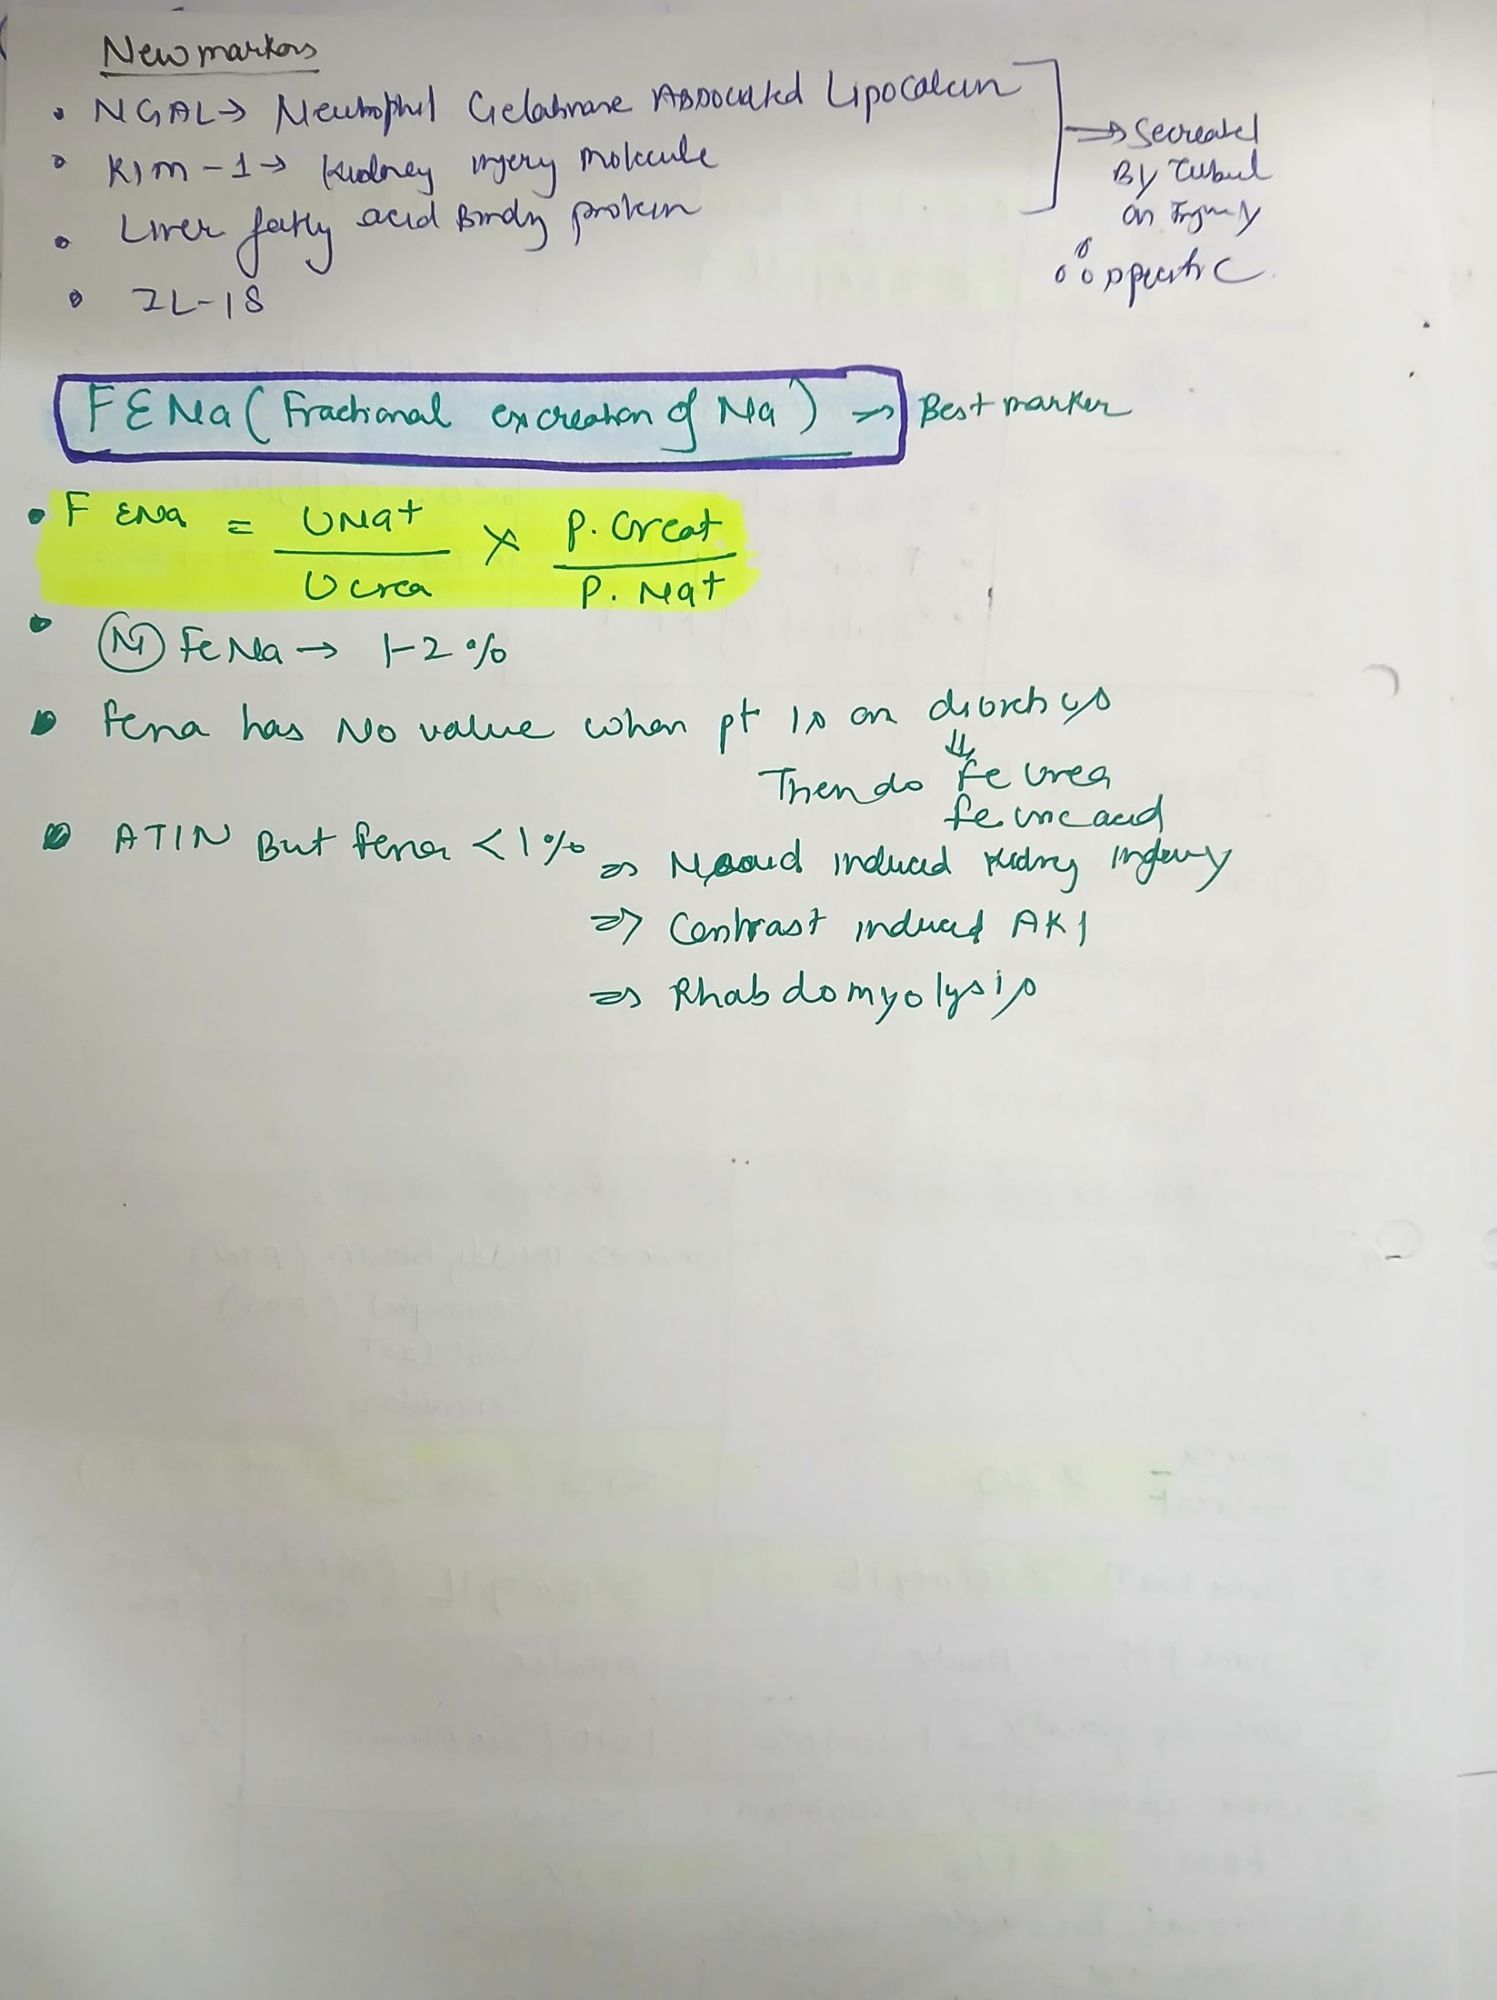 New markers
• NGAL → Neutrophil Gelatinase Associated Lipocalcin
• KIM-1 → Kidney injery molecule
• Liver fatty acid Bindy protein
• IL-18
⇒ Secreated
By Tubul
on Injury
∴ specific
FENa (Fractional excreation of Na) → Best marker
• FENa = UNa+ / Ucrea × P. Creat / P. Na+
• (N) FeNa → 1-2 %
• Fena has No value when pt is on diuretics
⇓
Then do Fe Urea
fe uric acid
• ATIN But fena <1% ⇒ induced kidney injury
⇒ Contrast induced AKI
⇒ Rhabdomyolysis